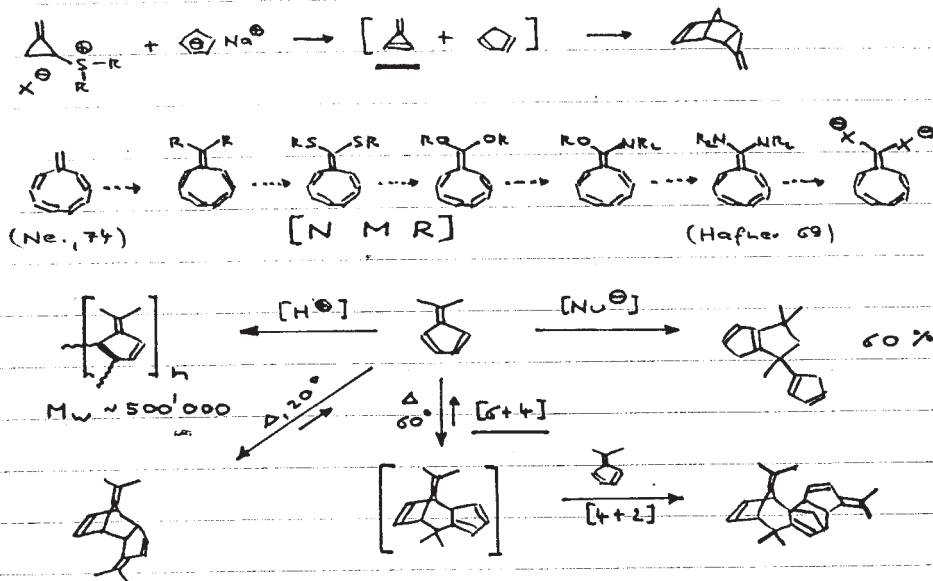 X⊖ ⊕S-R R + ⊖ Na⊕ → [ + ] →
R R RS SR RO OR RO NR₂ R₂N NR₂ ⊖X X⊖
(Ne., 74) [N M R] (Hafner 68)
[H⊕] [Nu⊖]
n 60 %
Mw ~500'000 Δ, 20° Δ 60° [6+4]
[4+2]